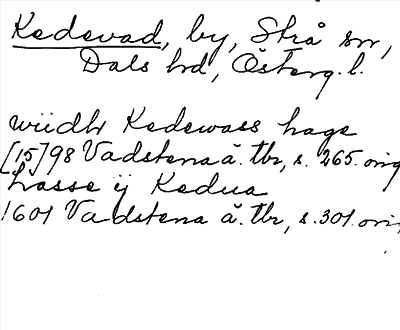 Kedevad, by, Strå sn,
Dals hd, Österg. l.
wiidh Kedewass hage
[15]98 Vadstena ä. tbr, s. 265. orig
Lasse ÿ Kedua
1601 Vadstena ä. tbr, s. 301. orig